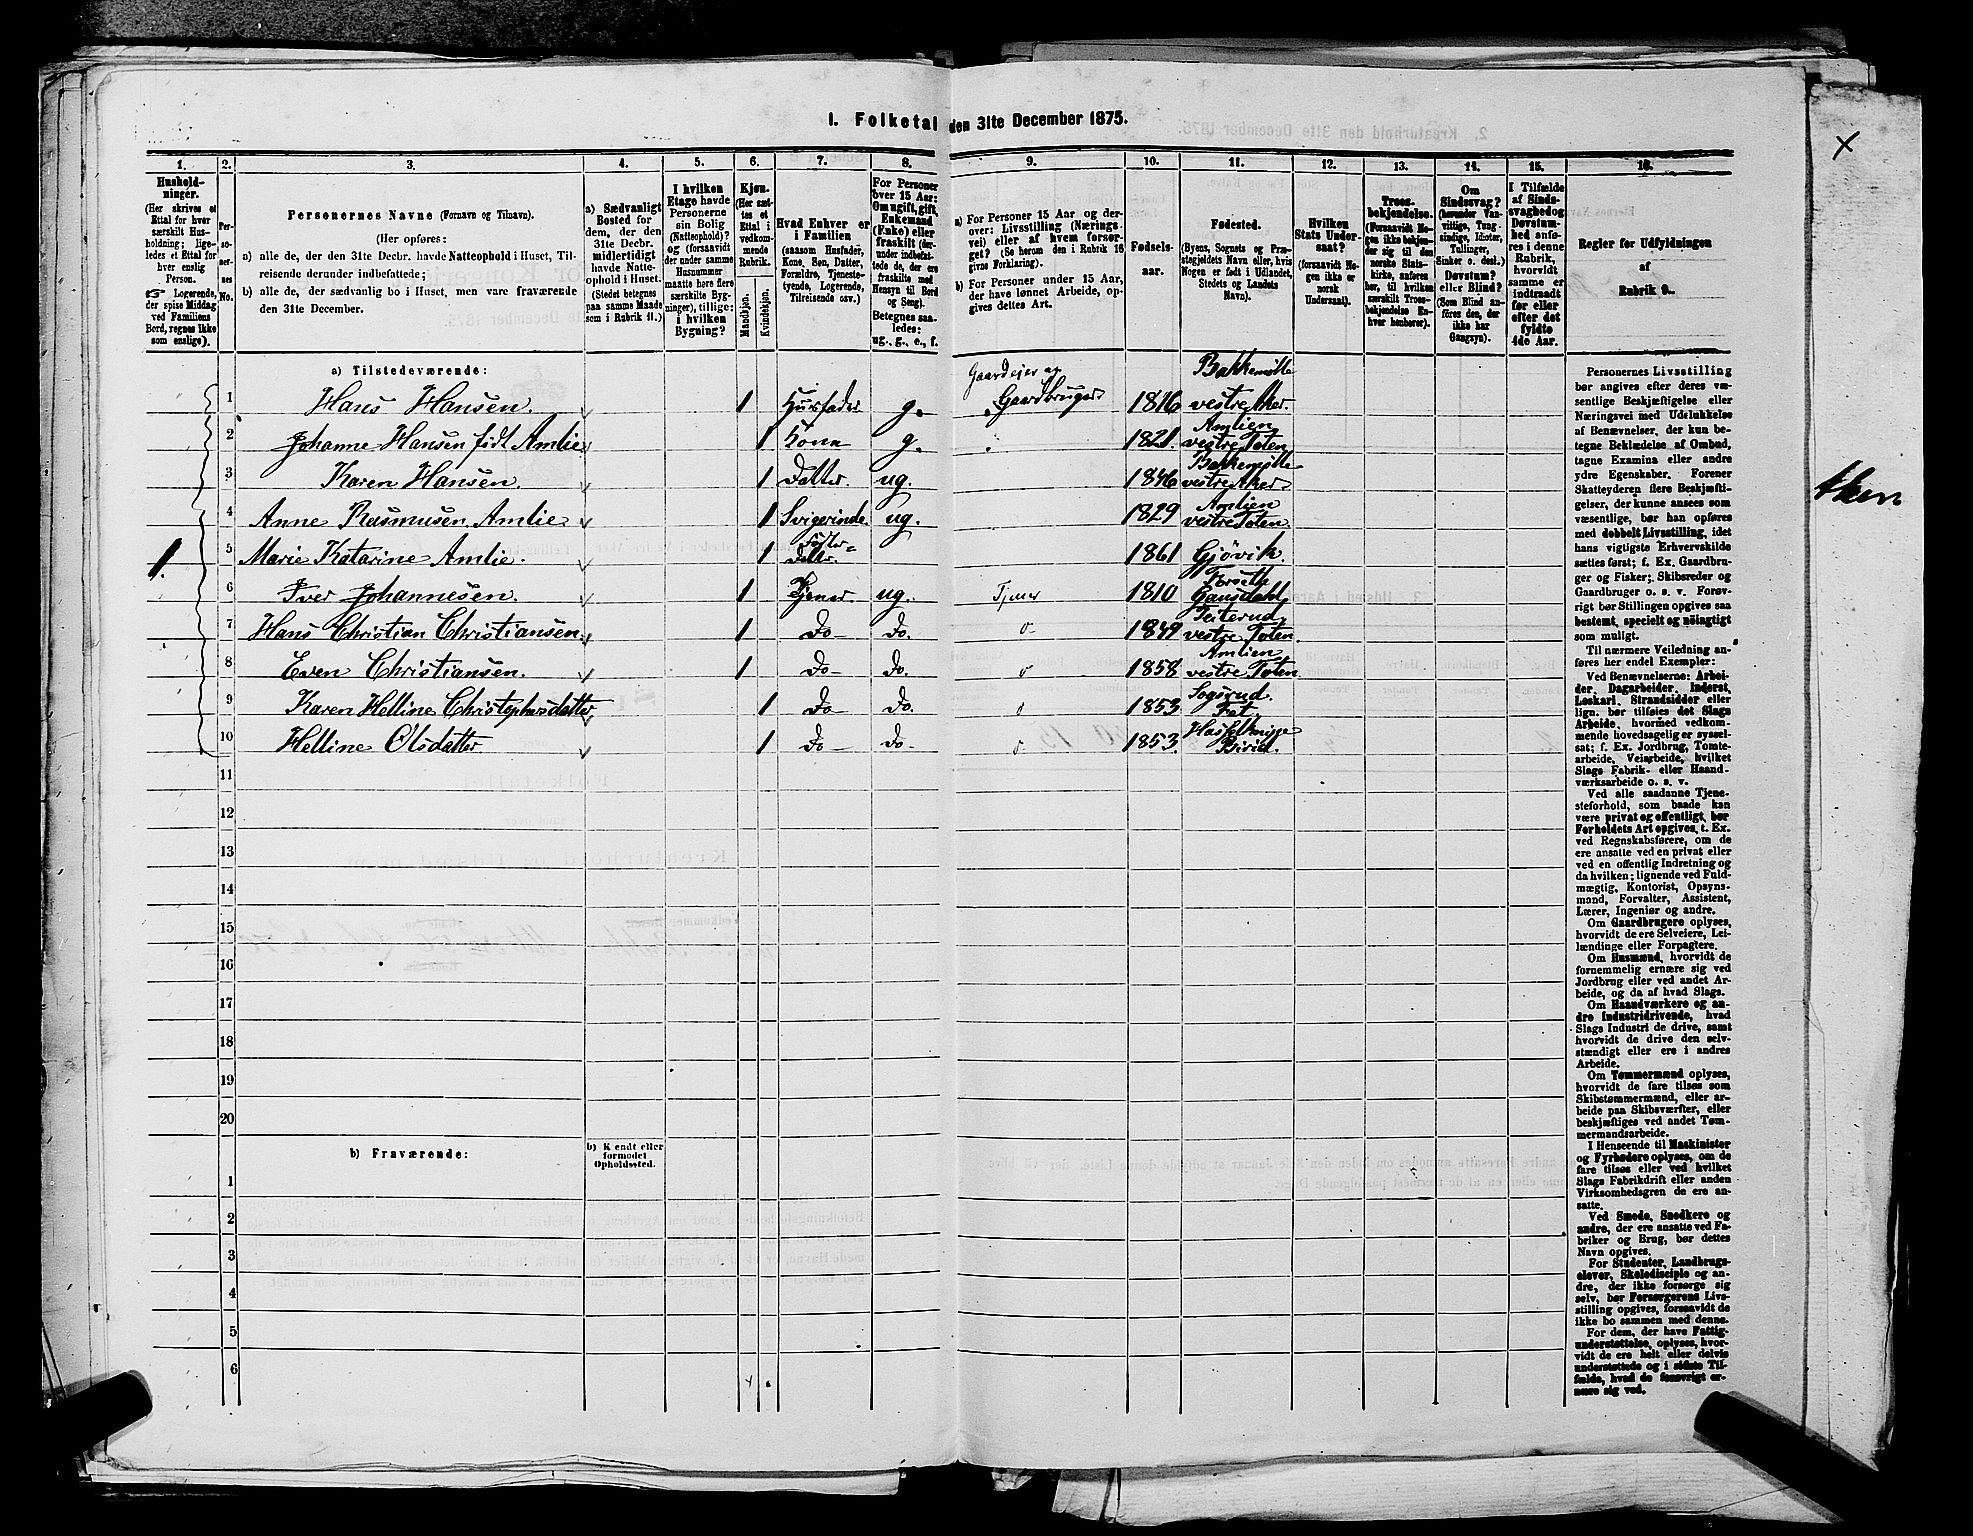 1. Folketal den 31te December 1875.
1. 2. 3. 4. 5. 6. 7. 8. 9. 10. 11. 12. 13. 14. 15. 16.
Hushold-
ninger.
(Her skrives et
Ettal for hver
særskilt Hus-
holdning; lige-
ledes et Ettal for
hver enslig
Person.
☞ Logerende,
der spise Middag
ved Familiens
Bord, regnes ikke
som enslige).
Per-
so-
ner-
nes
No.
Personernes Navne (Fornavn og Tilnavn).
(Her opføres:
a) alle de, der den 31te Decbr. havde Natteophold i Huset, Til-
reisende derunder indbefattede;
b) alle de, der sædvanlig bo i Huset, men vare fraværende
den 31te December.
a) Sædvanligt
Bosted for
dem, der den
31te Decbr.
midlertidigt
havde Natte-
ophold i Huset.
(Stedet betegnes
paa samme Maade
som i Rubrik 11.)
I hvilken
Etage havde
Personerne
sin Bolig
(Natteophold)?
og (forsaavidt
der under samme
Husnummer
maatte høre flere
særskilte Byg-
ninger), tillige:
i hvilken
Bygning?
Kjøn.
(Her sæt-
tes et
Ettal i
vedkom-
mende
Rubrik.
Mandkjøn.
Kvindekjøn.
Hvad Enhver er
i Familien
(saasom Husfader,
Kone, Søn, Datter,
Forældre, Tjeneste-
tyende, Logerende,
Tilreisende osv.)
For Personer
over 15 Aar:
Om ugift, gift,
Enkemand
(Enke) eller
fraskilt (der-
under indbefat-
tede de, der ere
fraskilte med
Hensyn til Bord
og Seng).
Betegnes saa-
ledes:
ug., g., e., f.
a) For Personer 15 Aar og der-
over: Livsstilling (Nærings-
vei) eller af hvem forsør-
get? (Se herom den i Rubrik 16
givne Forklaring).
b) For Personer under 15 Aar,
der have lønnet Arbeide, op-
gives dettes Art.
Fødsels-
aar.
Fødested.
(Byens, Sognets og Præ-
stegjeldets Navn eller, hvis
Nogen er født i Udlandet,
Stedets og Landets
Navn).
Hvilken
Stats Under-
saat?
(forsaavidt No-
gen ikke er
norsk
Undersaat).
Troes-
bekjendelse.
(Forsaavidt No-
gen ikke bekjen-
der sig til den
norske Stats-
kirke, anføres
her, til hvilken
særskilt Troes-
bekjendelse En-
hver henhører).
Om
Sindssvag?
(herunder Van-
vittige, Tung-
sindige, Idioter,
Tullinger,
Sinker o. desl.)
Døvstum?
eller Blind?
(Som Blind an-
føres den, der
ikke har
Gangsyn).
I Tilfælde
af Sinds-
svaghed og
Døvstum-
hed anfø-
res i denne
Rubrik,
hvorvidt
samme er
indtraadt
før eller
efter det
fyldte
4de Aar.
Regler for Udfyldningen
af
Rubrik 9.
a) Tilstedeværende:
1.
1 Hans Hansen. 1 Husfader g. Gaardejer og Gaardbruger 1816 Bakkemølle vestre Aker.
2 Johanne Hansen født Amlie 1 Kone g. 1821. Amlien vestre Toten
3 Karen Hansen. 1 Datter. ug. 1846 Bakkemølle vestre Aker
4 Anne Rasmusen Amlie 1 Svigerinde. ug. 1829 Amlien vestre Toten.
5 Marie Katarine Amlie. 1 Foster-Datter. 1861 Gjøvik
6 Iver Johannesen. 1 Tjener. ug. Tjener 1810 Forseth Gausdahl
7 Hans Christian Christiansen. 1 Do- Do. o- 1849 Teiterud, vestre Toten.
8 Even Christiansen. 1 Do- Do. o 1858 Amlien vestre Toten
9 Karen Helline Christophersdatter 1 Do- Do. o 1853 Sogsrud. Fet.
10 Helline Olsdatter 1 Do- Do- o 1853. Birid.
11
12
13
14
15
16
17
18
19
20
b) Fraværende:
b) Kjendt eller
formodet
Opholdssted.
1
2
3
4
5
6
Personernes Livsstilling
bør angives efter deres væ-
sentlige Beskjæftigelse eller
Næringsvei med Udelukkelse
af Benævnelser, der kun be-
tegne Beklædelse af Ombud,
tagne Examina eller andre
ydre Egenskaber. Forener
Skatteyderen flere Beskjæfti-
gelser, der kunne ansees som
væsentlige, bør han opføres
med dobbelt Livsstilling, idet
hans vigtigste Erhvervskilde
sættes først; f. Ex. Gaardbru-
ger og Fisker; Skibsreder og
Gaardbruger o. s. v. Forøv-
rigt bør Stillingen opgives saa
bestemt, specielt og nöiagtigt
som muligt.
Til nærmere Veiledning an-
føres her endel Exempler:
Ved Benævnelserne: Arbei-
der, Dagarbeider, Inderst,
Løskarl, Strandsidder eller
lign. bør tilføies det Slags
Arbeide, hvormed vedkom-
mende hovedsagelig er syssel-
sat; f. Ex. Jordbrug, Tomte-
arbeide, Veiarbeide, hvilket
Slags Fabrik- eller Haand-
værksarbeide o. s. v.
Ved alle saadanne Tjene-
steforhold, som baade kan
være privat og offentligt, bør
Forholdets Art opgives, t. Ex.
ved Regnskabsførere, om de
ere ansatte ved en privat eller
ved en offentlig Indretning og
da hvilken; lignende ved Fuld-
mægtig, Kontorist, Opsyns-
mand, Forvalter, Assistent,
Lærer, Ingeniør og andre.
Om Gaardbrugere oplyses,
hvorvidt de ere Selveiere, Lei-
lændinge eller Forpagtere.
Om Husmænd, hvorvidt de
fornemmelig ernære sig ved
Jordbrug eller ved andet Ar-
beide, og da af hvad Slags.
Om Haandværkere og an-
dre Industridrivende, hvad
Slags Industri de drive, samt
hvorvidt de drive den selv-
stændigt eller ere i andres
Arbeide.
Om Tømmermænd oplyses,
hvorvidt de fare tilsøs som
Skibstømmermænd, eller ar-
beide paa Skibsværfter, eller
beskjæftiges ved andet Tøm-
mermandsarbeide.
I Henseende til Maskinister
og Fyrbødere oplyses, om de
fare tilsøs eller ved hvilket
Slags Fabrikdrift eller anden
Virksomhedsgren de ere an-
satte.
Ved Smede, Snedkere og
andre, der ere ansatte ved Fa-
briker og Brug, bør dettes
Navn opgives.
For Studenter, Landbrugs-
elever, Skoledisciple og an-
dre, der ikke forsørge sig
selv, bør Forsørgerens Livs-
stilling opgives, forsaavidt de
ikke bo sammen med denne.
For dem, der have Fattig-
understøttelse, oplyses, hvor-
vidt de ere helt eller delvis
understøttede og i sidste Til-
fælde, hvad de forøvrigt er-
nære sig ved.
x